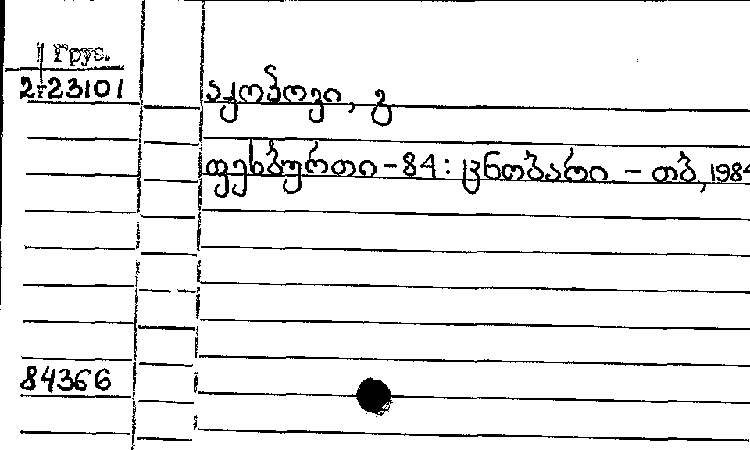 Груз.
2-23101
აკოპოვი, გ
ფეხბურთი - 84: ცნობარი - თბ, 1984
84366